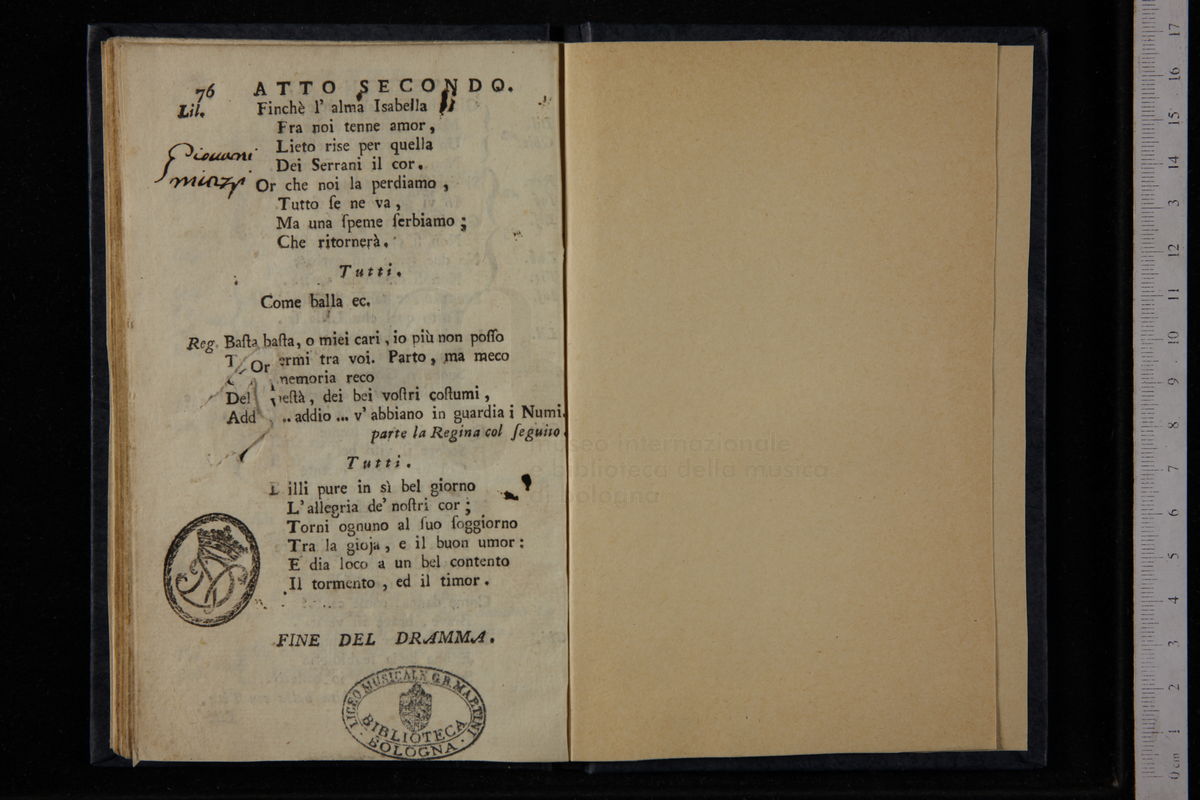 76 ATTO SECONDO.
Lil. Finchè l' alma Isabella
Fra noi tenne amor,
Lieto rise per quella
Dei Serrani il cor.
Or che noi la perdiamo,
Tutto ſe ne va,
Ma una ſpeme ſerbiamo;
Che ritornerà.
Tutti.
Come balla ec.
Reg. Baſta baſta, o miei cari, io più non poſſo
ermi tra voi. Parto, ma meco
Or
memoria reco
Del, dei bei voſtri coſtumi,
Add .. addio ... v' abbiano in guardia i Numi.
parte la Regina col ſeguito.
Tutti.
illi pure in sì bel giorno
L'allegria de' noſtri cor;
Torni ognuno al ſuo ſoggiorno
Tra la gioja, e il buon umor:
E dia loco a un bel contento
Il tormento, ed il timor.
FINE DEL DRAMMA.
LICEO MUSICALE G.B. MARTINI
BIBLIOTECA
BOLOGNA
museo internazionale
e biblioteca della musica
di bologna
0 cm 1 2 3 4 5 6 7 8 9 10 11 12 13 14 15 16 17